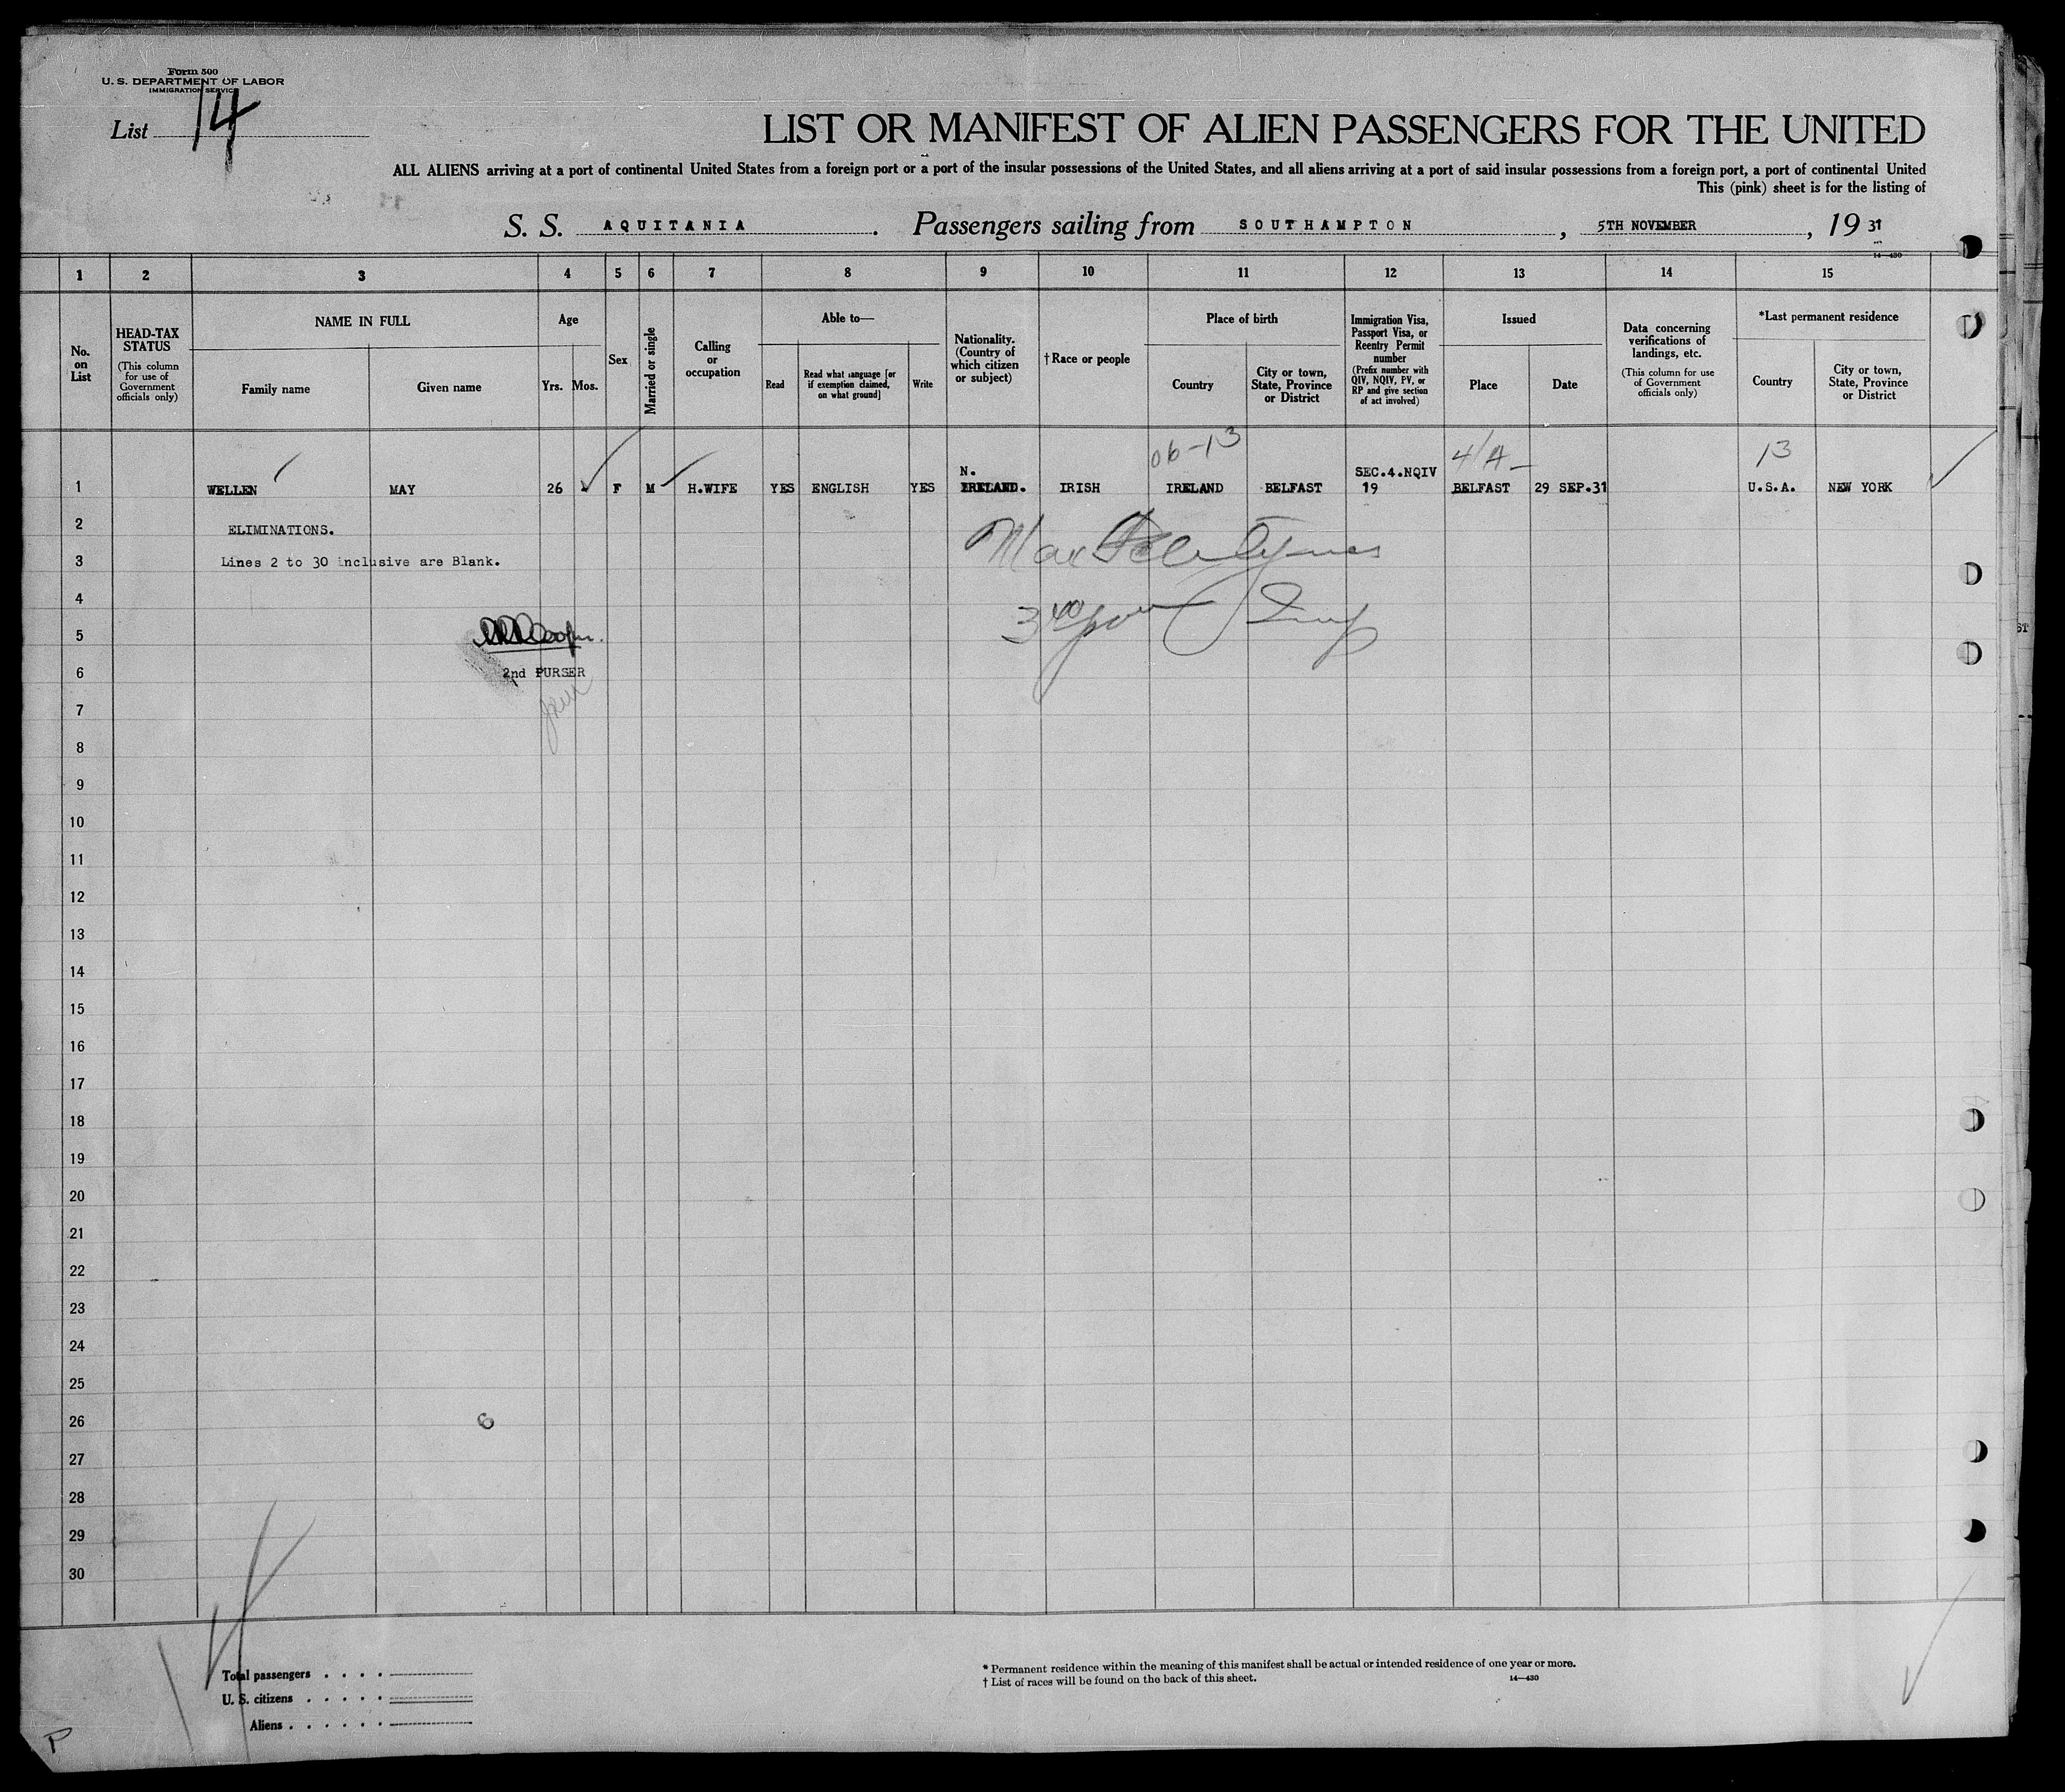 Form 500
U. S. DEPARTMENT OF LABOR
IMMIGRATION SERVICE
List 14
LIST OR MANIFEST OF ALIEN PASSENGERS FOR THE UNITED
ALL ALIENS arriving at a port of continental United States from a foreign port or a port of the insular possessions of the United States, and all aliens arriving at a port of said insular possessions from a foreign port, a port of continental United
This (pink) sheet is for the listing of
S. S. AQUITANIA . Passengers sailing from SOUTHAMPTON , 5TH NOVEMBER , 19 31
14—430
1 2 3 4 5 6 7 8 9 10 11 12 13 14 15
No. on List
HEAD-TAX STATUS (This column for use of Government officials only)
NAME IN FULL
Family name Given name
Age
Yrs. Mos.
Sex
Married or single
Calling or occupation
Able to—
Read Read what language [or if exemption claimed, on what ground] Write
Nationality. (Country of which citizen or subject)
†Race or people
Place of birth
Country City or town, State, Province or District
Immigration Visa, Passport Visa, or Reentry Permit number (Prefix number with QIV, NQIV, PV, or RP and give section of act involved)
Issued
Place Date
Data concerning verifications of landings, etc. (This column for use of Government officials only)
*Last permanent residence
Country City or town, State, Province or District
06-13 4/A- 13
N. SEC.4.NQIV
1 WELLEN MAY 26 F M H.WIFE YES ENGLISH YES IRELAND. IRISH IRELAND BELFAST 19 BELFAST 29 SEP.31 U.S.A. NEW YORK
2 ELIMINATIONS.
3 Lines 2 to 30 inclusive are Blank.
4
5
6 2nd PURSER
7
8
9
10
11
12
13
14
15
16
17
18
19
20
21
22
23
24
25
26
27
28
29
30
Total passengers . . . .
U. S. citizens . . . . .
Aliens . . . . . .
* Permanent residence within the meaning of this manifest shall be actual or intended residence of one year or more.
† List of races will be found on the back of this sheet.
14—430
P